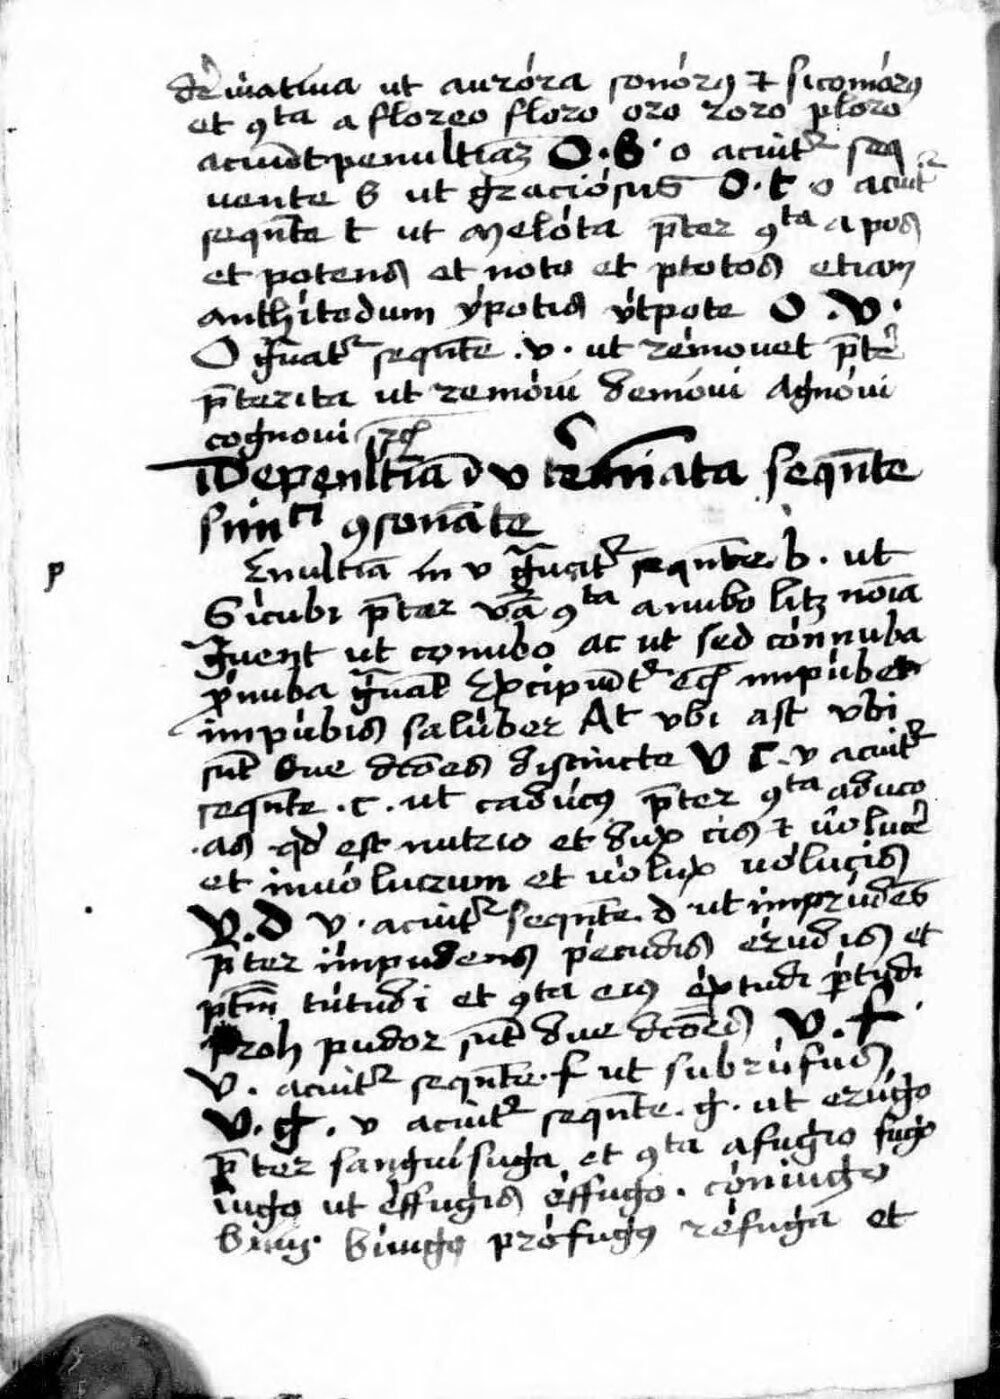 dr̄iuatiua ut auróra sonórꝰ ⁊ sicomórꝰ
et ꝯta a floreo floro oro roro ploro
acuūt penultiāꝫ O · S · o acuitᷣ seq̄
uente S ut graciósus O · t o acuitᷣ
seqn̄te t ut Melóta p̄ter ꝯta a pos
et potens et noto et ptotos etiam
anthítedum ýpotis útpote O . V .
O gͣuatᷣ seqn̄te . v . ut rémouet p̄tᷣ
p̄terita ut remóui demóui Agnóui
cognoui
De penl̄tiā ī v tᷣminata seqn̄te
simᵗⁱ ꝯsonāte
p
Enultiā in v gͣuatᷣ seqn̄te . b . ut
Sícubi p̄ter vā ꝯta a nubo litꝫ noīa
gͣuent ut conubo ac ut sed cónnuba
prónuba gͣuāt Excipiūtᷣ impúbes
impúbis salúber At vbi ast vbi
sūt due dcōes distincte V C . v acuitᷣ
seqn̄te . c . ut cadúcꝰ p̄ter ꝯta aduco
. as . qd̄ est nutrio et dux cis ⁊ uólucᷣ
et inuólucrum et uólux uólucis
V . D v . acuitᷣ seqn̄te . d . ut imprúdēs
p̄ter ímpudens pécudis érudis et
ptm̄ tútudi et ꝯta eiꝰ éxtudi pértudi
proh pudor sūt due dcōes V . f .
V . acuitᷣ seqn̄te . f ut subrúfus
V . g . v acuitᷣ seqn̄te . g . ut erúgo
p̄ter sanguísuga et ꝯta a fugio fugo
iugo ut éffugis éffugo . cóniugo
bíugꝰ prófugꝰ réfuga et